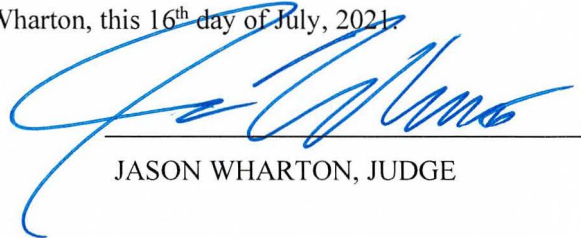 Wharton, this 16th day of July, 2021.
JASON WHARTON, JUDGE